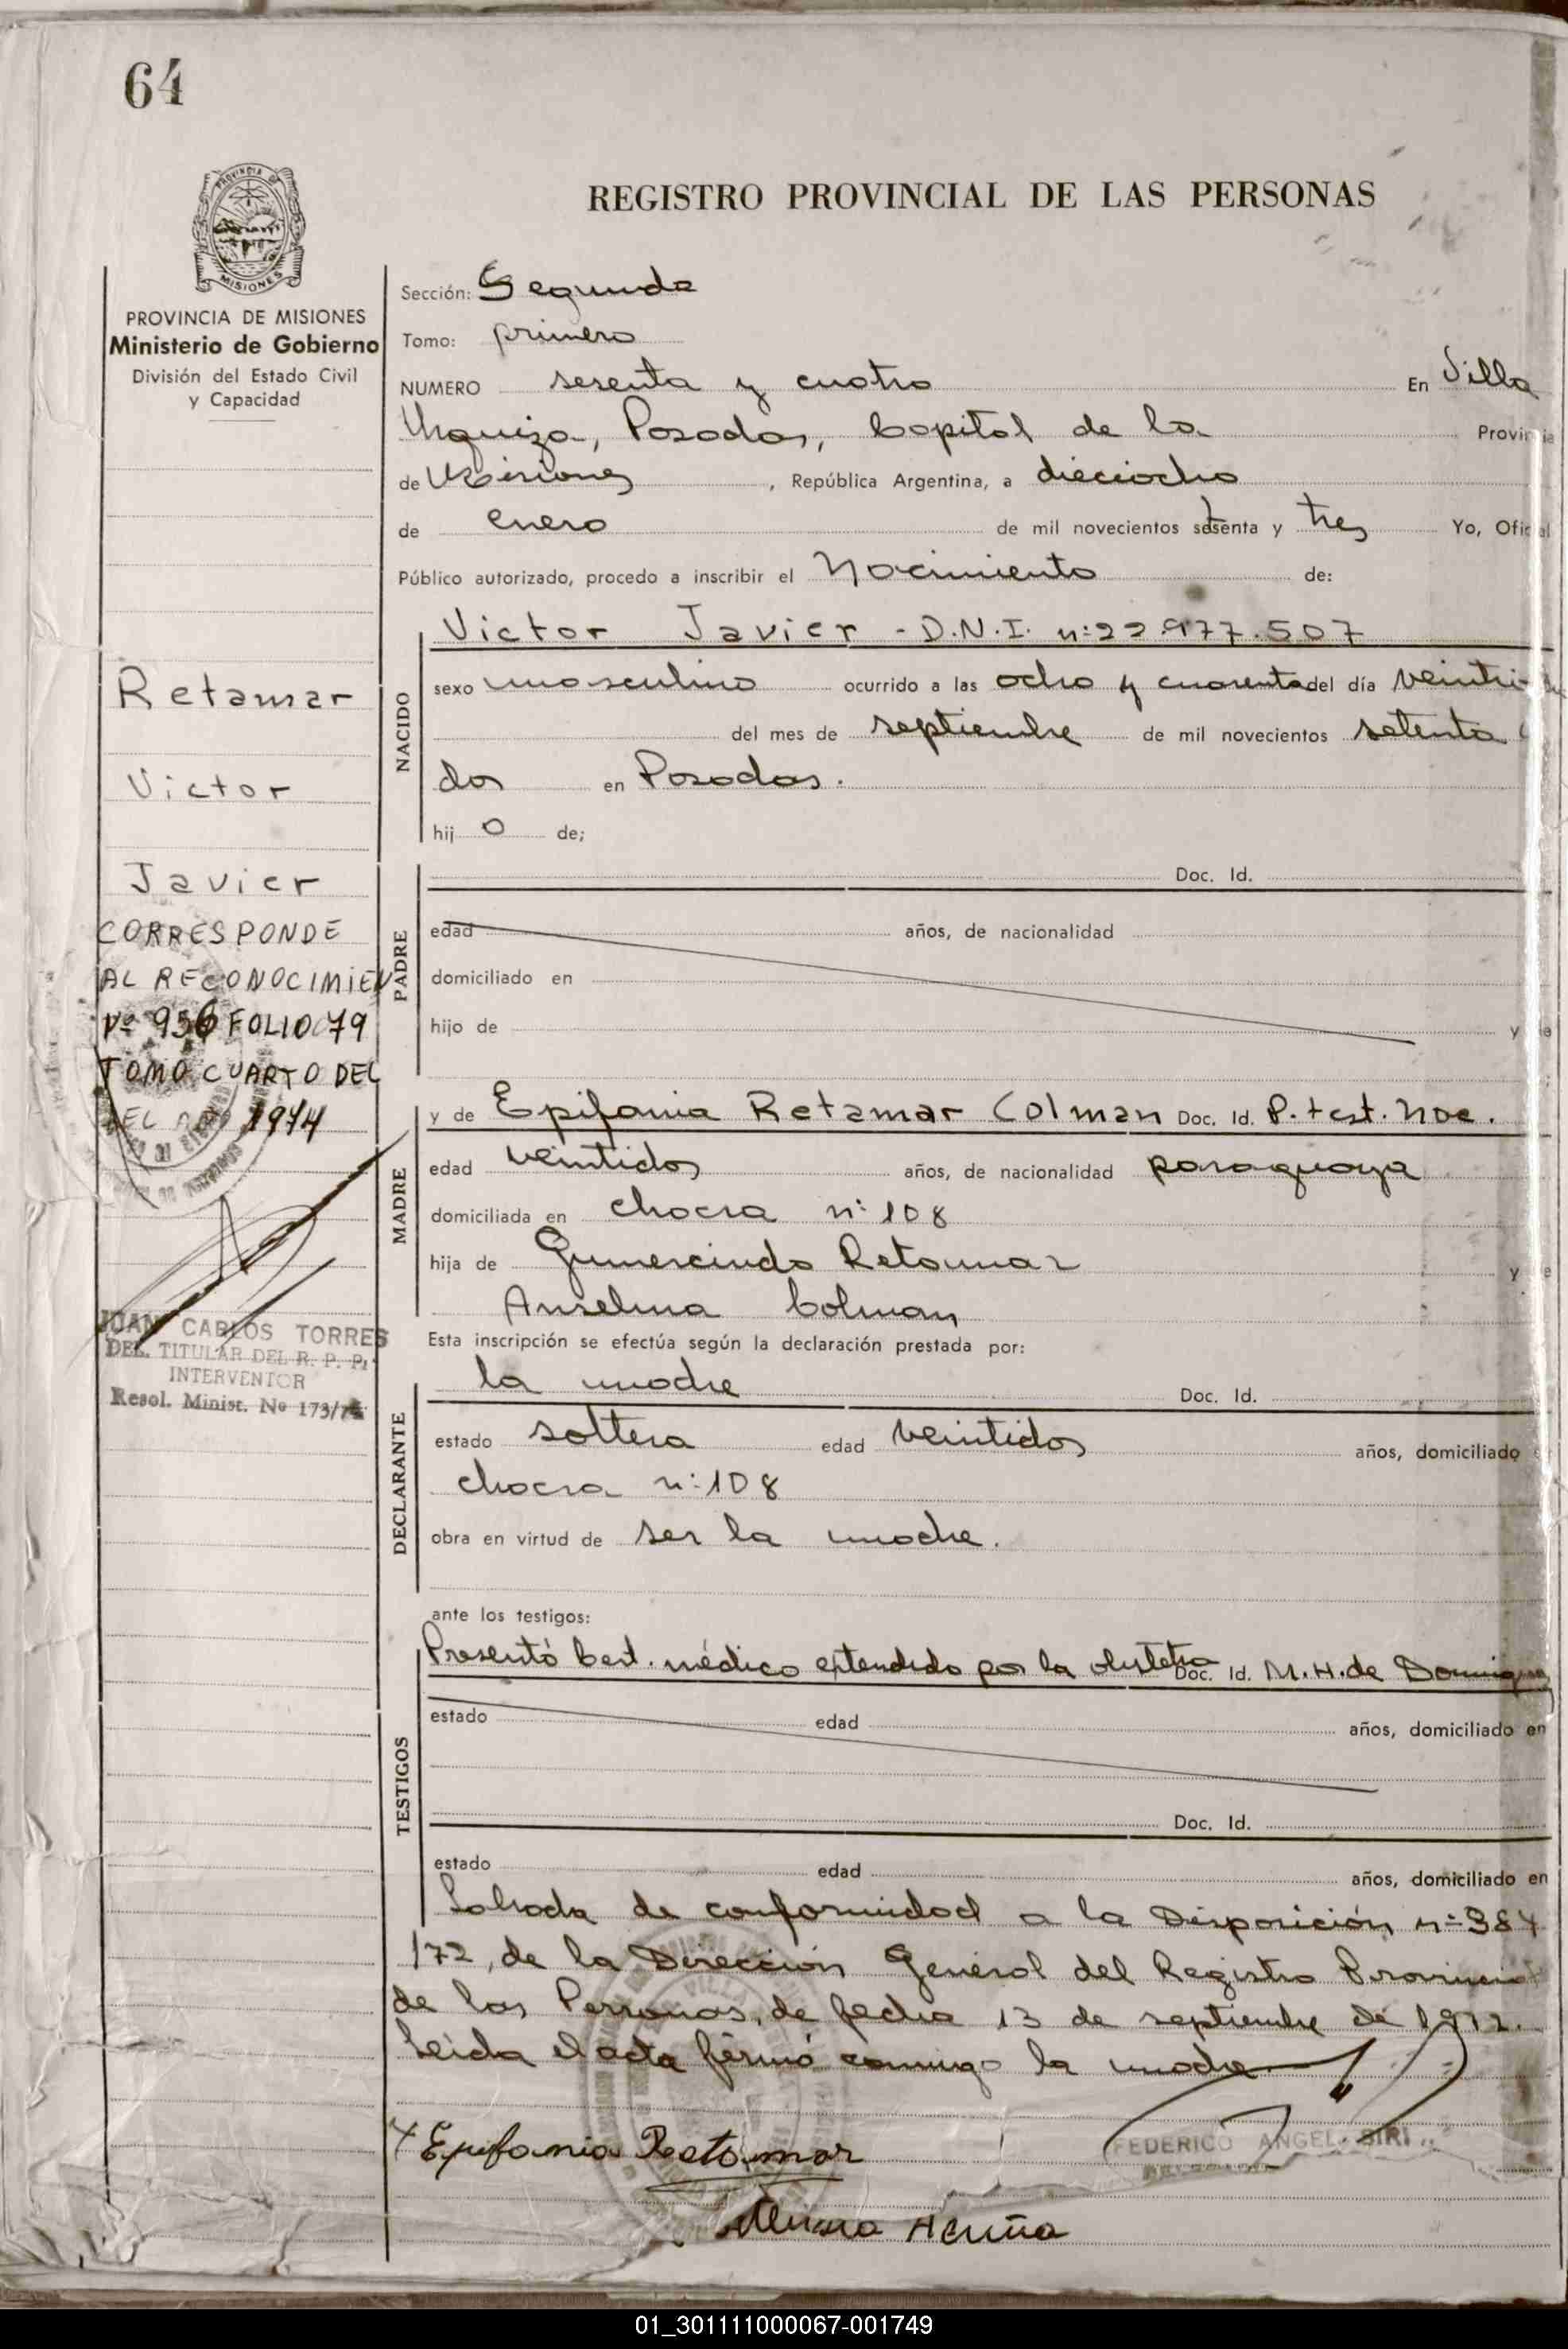 64
PROVINCIA DE
MISIONES
REGISTRO PROVINCIAL DE LAS PERSONAS
PROVINCIA DE MISIONES
Ministerio de Gobierno
División del Estado Civil
y Capacidad
Sección: Segunda
Tomo: primero
NUMERO sesenta y cuatro En Villa
Urquiza, Posadas, Capital de la Provincia
de Misiones, República Argentina, a dieciocho
de enero de mil novecientos setenta y tres Yo, Oficial
Público autorizado, procedo a inscribir el Nacimiento de:
Victor Javier - D.N.I. n:22.977.507
NACIDO
sexo masculino ocurrido a las ocho y cuarenta del día
del mes de septiembre de mil novecientos setenta y
dos en Posadas.
hij o de;
Retamar
Victor
Javier
CORRESPONDE
AL RECONOCIMIEN
Nº 956 FOLIO 79
TOMO CUARTO DEL
DEL AÑO 1974
JUAN CARLOS TORRES
DEL. TITULAR DEL R. P. P.
INTERVENTOR
Resol. Minist. Nº 173/
PADRE
Doc. Id.
edad años, de nacionalidad
domiciliado en
hijo de y de
MADRE
y de Epifania Retamar Colman Doc. Id. P. test. noc.
edad veintidos años, de nacionalidad paraguaya
domiciliada en chacra n: 108
hija de Gumercindo Retamar y de
Anselma Colman
Esta inscripción se efectúa según la declaración prestada por:
DECLARANTE
la madre Doc. Id.
estado soltera edad veintidos años, domiciliado en
chacra n: 108
obra en virtud de ser la madre.
ante los testigos:
TESTIGOS
Presentó Cert. médico extendido por la obstetra Doc. Id. M. H. de Dominguez
estado edad años, domiciliado en
Doc. Id.
estado edad años, domiciliado en
Labrada de conformidad a la Disposición n:384
/72, de la Dirección General del Registro Provincial
de las Personas, de fecha 13 de septiembre de 1972.
Leída el acta firmó conmigo la madre
Epifania Retamar
FEDERICO ANGEL BIRI
Acuña
01_301111000067-001749